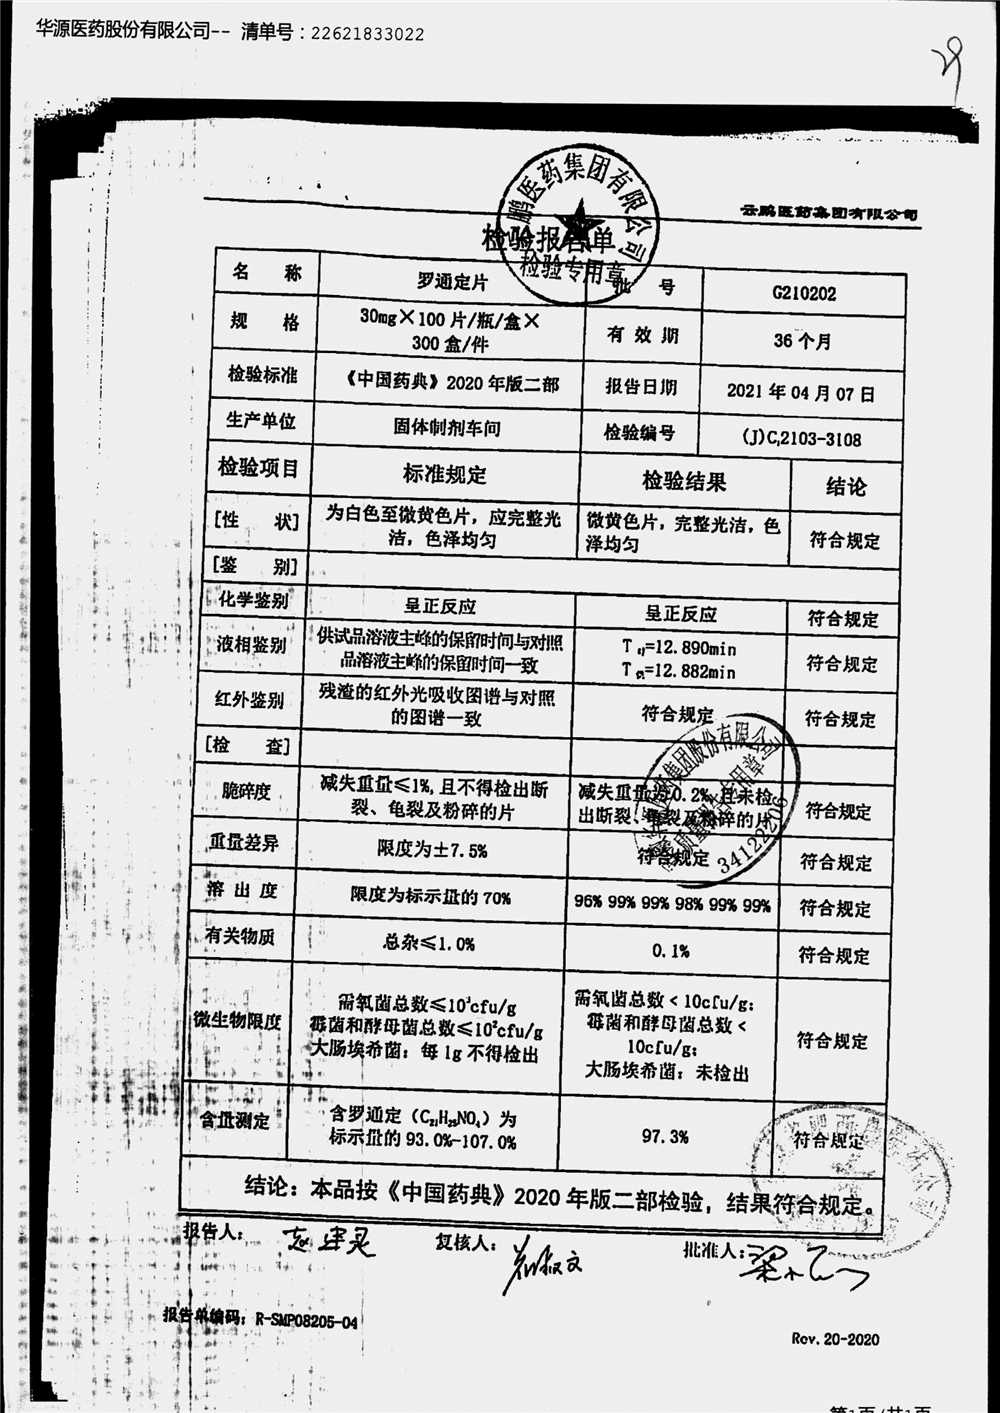 华源医药股份有限公司-- 清单号：22621833022
29
云鹏医药集团有限公司
鹏医药集团有限公司
检验报告单
检验专用章
名 称 罗通定片 批 号 G210202
规 格 30mg×100片/瓶/盒×
300盒/件 有 效 期 36个月
检验标准 《中国药典》2020年版二部 报告日期 2021年04月07日
生产单位 固体制剂车间 检验编号 (J)C,2103-3108
检验项目 标准规定 检验结果 结论
[性 状] 为白色至微黄色片，应完整光
洁，色泽均匀 微黄色片，完整光洁，色
泽均匀 符合规定
[鉴 别]
化学鉴别 呈正反应 呈正反应 符合规定
液相鉴别 供试品溶液主峰的保留时间与对照
品溶液主峰的保留时间一致 T =12.890min
T 供=12.882min 符合规定
红外鉴别 残渣的红外光吸收图谱与对照
的图谱一致 符合规定 符合规定
[检 查]
脆碎度 减失重量≤1%,且不得检出断
裂、龟裂及粉碎的片 减失重量为0.2%,且未检
出断裂、龟裂及粉碎的片 符合规定
34122206
重量差异 限度为±7.5% 符合规定 符合规定
溶 出 度 限度为标示量的70% 96% 99% 99% 98% 99% 99% 符合规定
有关物质 总杂≤1.0% 0.1% 符合规定
微生物限度 需氧菌总数≤10³cfu/g
霉菌和酵母菌总数≤10²cfu/g
大肠埃希菌：每1g不得检出 需氧菌总数<10cfu/g;
霉菌和酵母菌总数<
10cfu/g;
大肠埃希菌：未检出 符合规定
含量测定 含罗通定（C₂₁H₂₅NO₄）为
标示量的93.0%-107.0% 97.3% 符合规定
结论：本品按《中国药典》2020年版二部检验，结果符合规定。
报告人： 复核人： 批准人：
报告单编码：R-SMP08205-04
Rev.20-2020
第1页/共1页